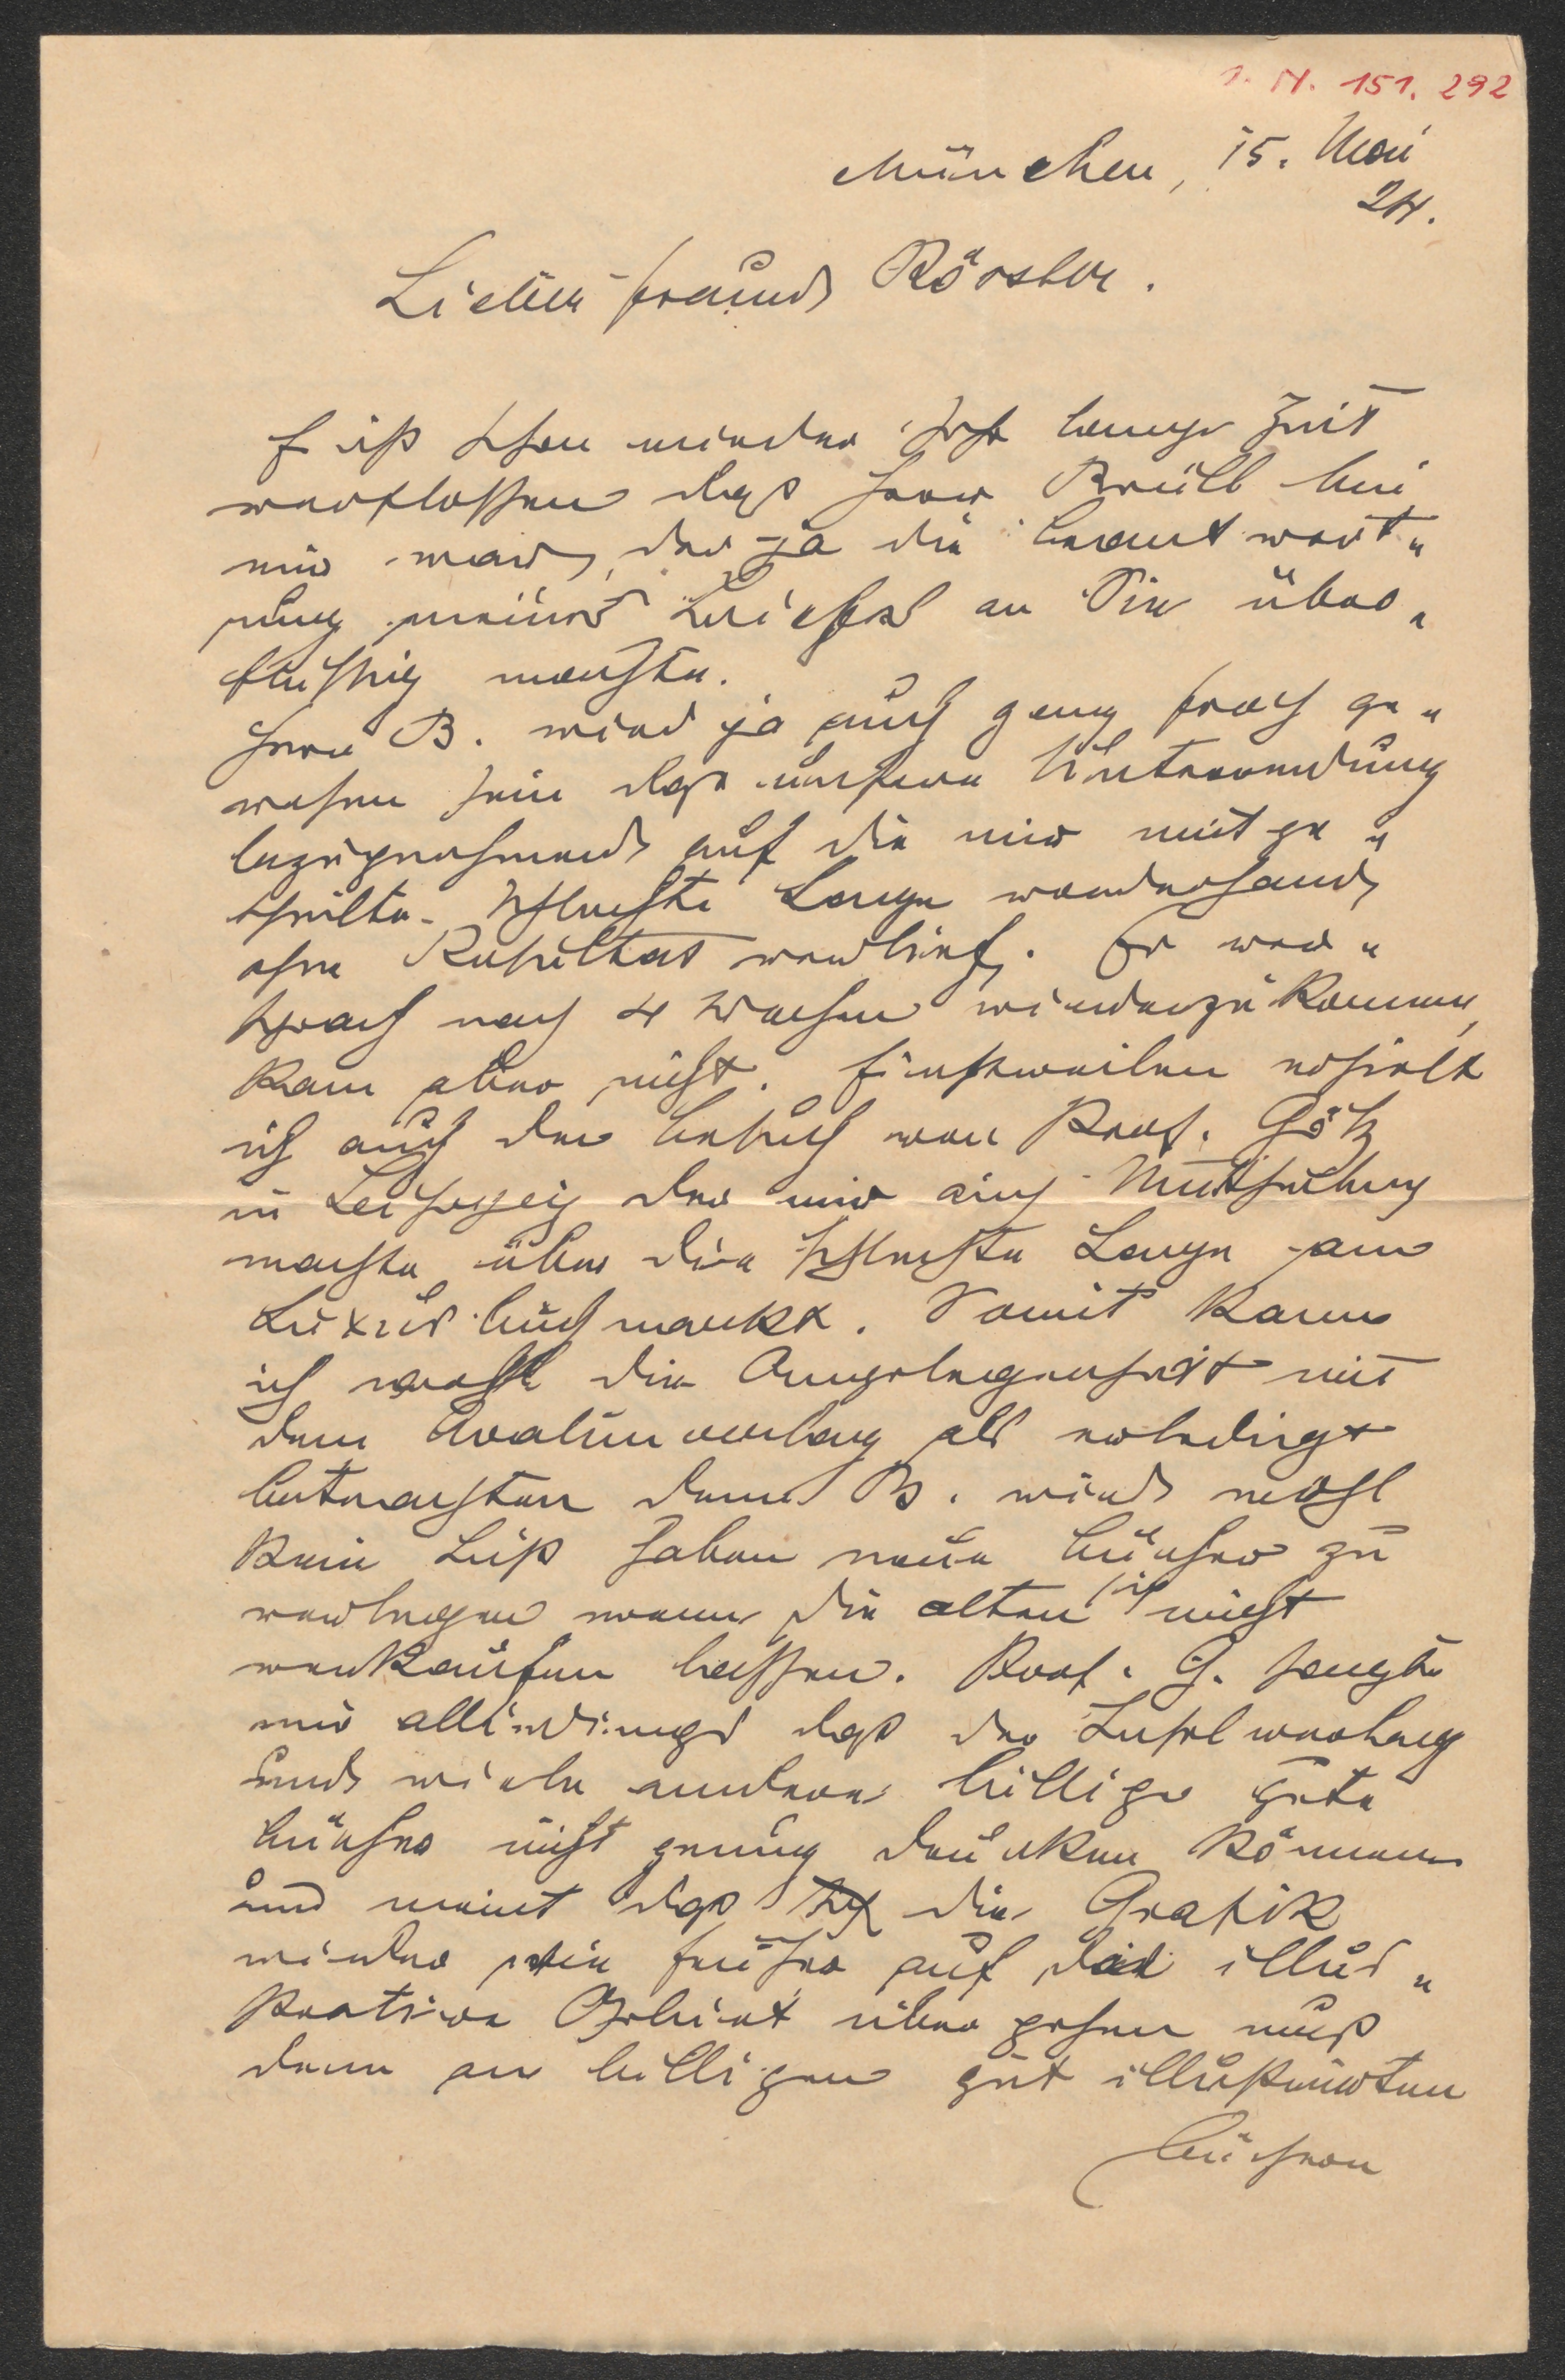 I. N. 151.292
München, 15. Mai
24.
Lieber Freund Rössler.
Es ist schon wieder sehr lange Zeit
verflossen dass Herr Brüll bei
mir war, der ja die Beantwort„
ung meines Briefes an Sie über„
flüssig machte.
Herr B. wird ja auch ganz froh ge„
wesen sein dass unsere Unterredung
bezugnehmend auf die mir mitge„
theilte schlechte Lage vonderhand
ohne Resultat verlief. Er ver„
sprach nach 4 Wochen wiederzukommen,
kam aber nicht. Einstweilen erhielt
ich auch den Besuch von Prof. Götz
in Leipzig der mir auch Mittheilung
machte über die schlechte Lage am
Luxusbuchmarkt. Somit kann
ich wohl die Angelegenheit mit
dem Avalun verlag als erledigt
betrachten denn B. wird wohl
kein Lust haben neue Bücher zu
verlegen wenn die alten sich nicht
verkaufen lassen. Prof. G. sagte
mir allerdings dass der Inselverlag
und viele andere billige gute
Bücher nicht genug drucken können
und meint dass die Grafik
wieder wie früher auf das illus„
trative Gebiet über gehen muß
denn an billigen gut illustrierten
Büchern